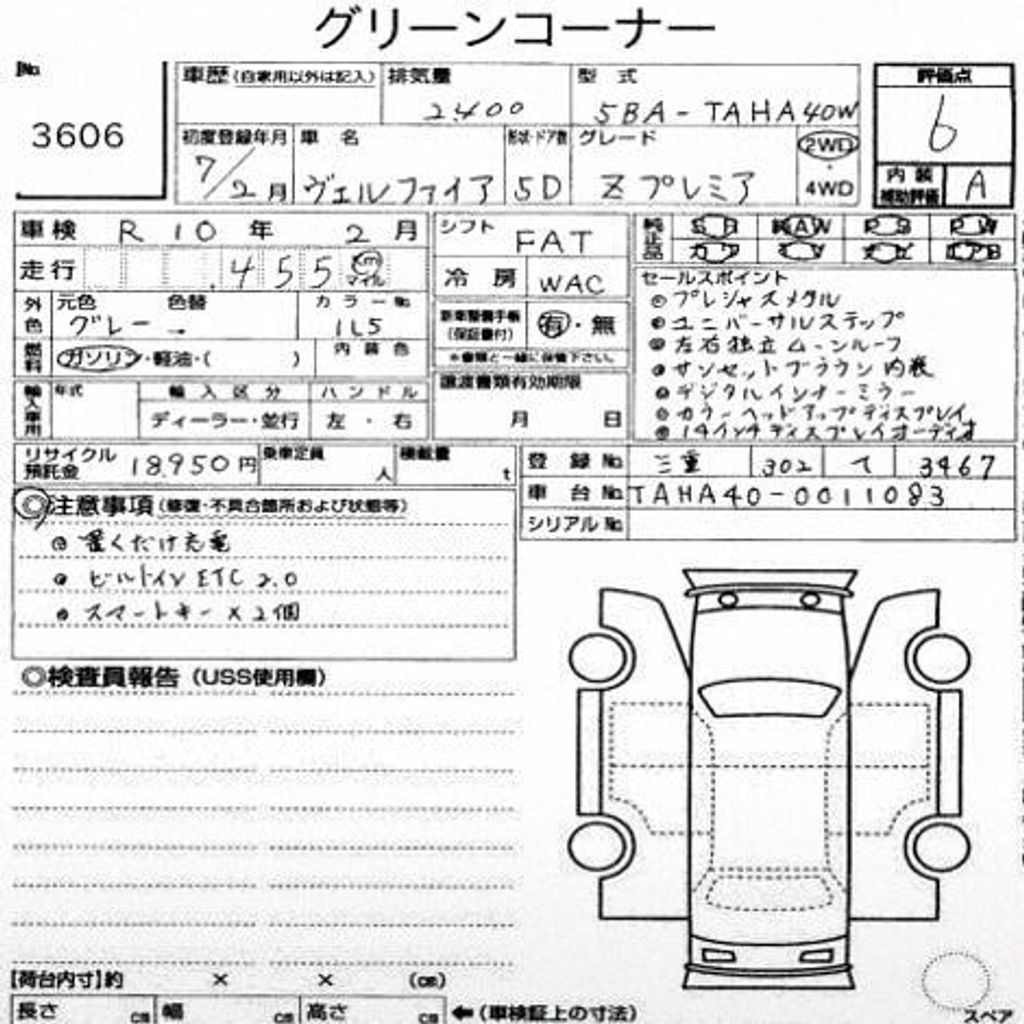 グリーンコーナー
No.
3606
車歴 (自家用以外は記入) 排気量 型式
2400 5BA-TAHA40W
初度登録年月 車名 形状・ドア数 グレード 2WD・4WD
7/2月 ヴェルファイア 5D Zプレミア
評価点
6
内装補助評価 A
車検 R10年 2月
走行 455 km マイル
外色 元色 色替 カラーNo.
グレー 1L5
燃料 ガソリン・軽油・( ) 内装色
輸入車用 年式 輸入区分 ハンドル
ディーラー・並行 左・右
リサイクル預託金 18,950円 乗車定員 人 積載量 t
シフト FAT
冷房 WAC
新車整備手帳(保証書付) 有・無
※書類と一緒に保管下さい。
譲渡書類有効期限
月 日
純正品 SR 純AW PS PW
カワ TV ナビ エアB
セールスポイント
プレシャスメタル
ユニバーサルステップ
左右独立ムーンルーフ
サンセットブラウン内装
デジタルインナーミラー
カラーヘッドアップディスプレイ
14インチディスプレイオーディオ
登録No. 三重 302 て 3467
車台No. TAHA40-0011083
シリアルNo.
◎注意事項 (修復・不具合箇所および状態等)
置くだけ充電
ビルトインETC2.0
スマートキー×2個
◎検査員報告 (USS使用欄)
【荷台内寸】約 × × (cm)
長さ cm 幅 cm 高さ cm ←(車検証上の寸法)
スペア